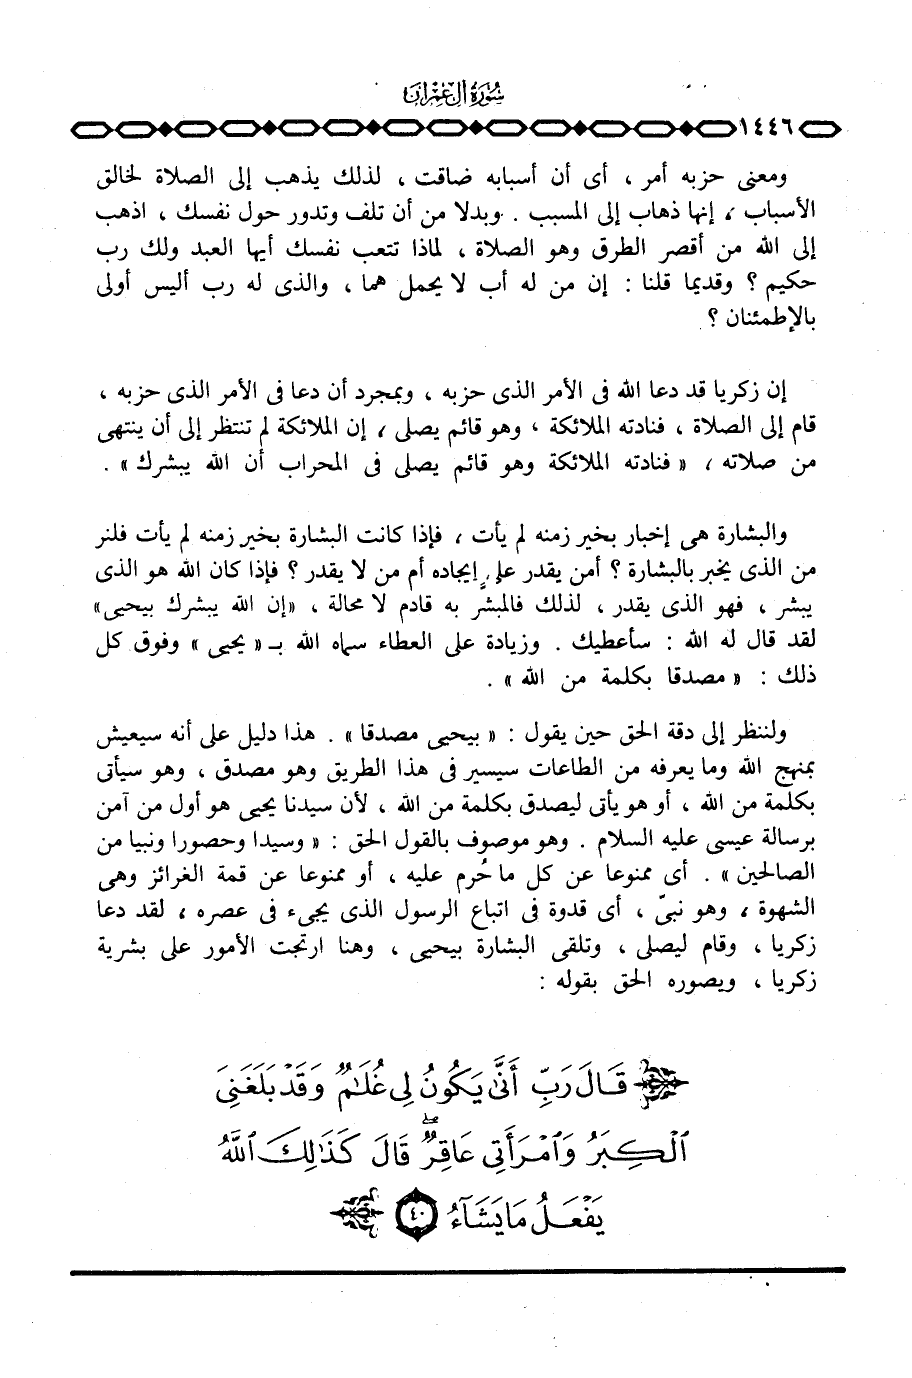 سُورَةُ آلِ عِمْرَانَ
١٤٤٦
ومعنى حزبه أمر ، أى أن أسبابه ضاقت ، لذلك يذهب إلى الصلاة لخالق
الأسباب ، إنها ذهاب إلى المسبب . وبدلا من أن تلف وتدور حول نفسك ، اذهب
إلى الله من أقصر الطرق وهو الصلاة ، لماذا تتعب نفسك أيها العبد ولك رب
حكيم ؟ وقديما قلنا : إن من له أب لا يحمل هما ، والذى له رب أليس أولى
بالإطمئنان ؟
إن زكريا قد دعا الله فى الأمر الذى حزبه ، وبمجرد أن دعا فى الأمر الذى حزبه ،
قام إلى الصلاة ، فنادته الملائكة ، وهو قائم يصلى ، إن الملائكة لم تنتظر إلى أن ينتهى
من صلاته ، « فنادته الملائكة وهو قائم يصلى فى المحراب أن الله يبشرك » .
والبشارة هى إخبار بخير زمنه لم يأت ، فإذا كانت البشارة بخير زمنه لم يأت فلنر
من الذى يخبر بالبشارة ؟ أمن يقدر على إيجاده أم من لا يقدر ؟ فإذا كان الله هو الذى
يبشر ، فهو الذى يقدر ، لذلك فالمبشر به قادم لا محالة ، «إن الله يبشرك بيحيى»
لقد قال له الله : سأعطيك . وزيادة على العطاء سماه الله بـ « يحيى » وفوق كل
ذلك : « مصدقا بكلمة من الله » .
ولننظر إلى دقة الحق حين يقول : « بيحيى مصدقا » . هذا دليل على أنه سيعيش
بمنهج الله وما يعرفه من الطاعات سيسير فى هذا الطريق وهو مصدق ، وهو سيأتى
بكلمة من الله ، أو هو يأتى ليصدق بكلمة من الله ، لأن سيدنا يحيى هو أول من آمن
برسالة عيسى عليه السلام . وهو موصوف بالقول الحق : « وسيدا وحصورا ونبيا من
الصالحين » . أى ممنوعا عن كل ما حُرم عليه ، أو ممنوعا عن قمة الغرائز وهى
الشهوة ، وهو نبىّ ، أى قدوة فى اتباع الرسول الذى يجىء فى عصره ، لقد دعا
زكريا ، وقام ليصلى ، وتلقى البشارة بيحيى ، وهنا ارتجت الأمور على بشرية
زكريا ، ويصوره الحق بقوله :
قَالَ رَبِّ أَنَّىٰ يَكُونُ لِي غُلَٰمٌ وَقَدْ بَلَغَنِيَ
ٱلْكِبَرُ وَٱمْرَأَتِي عَاقِرٌۖ قَالَ كَذَٰلِكَ ٱللَّهُ
يَفْعَلُ مَا يَشَآءُ ٤٠